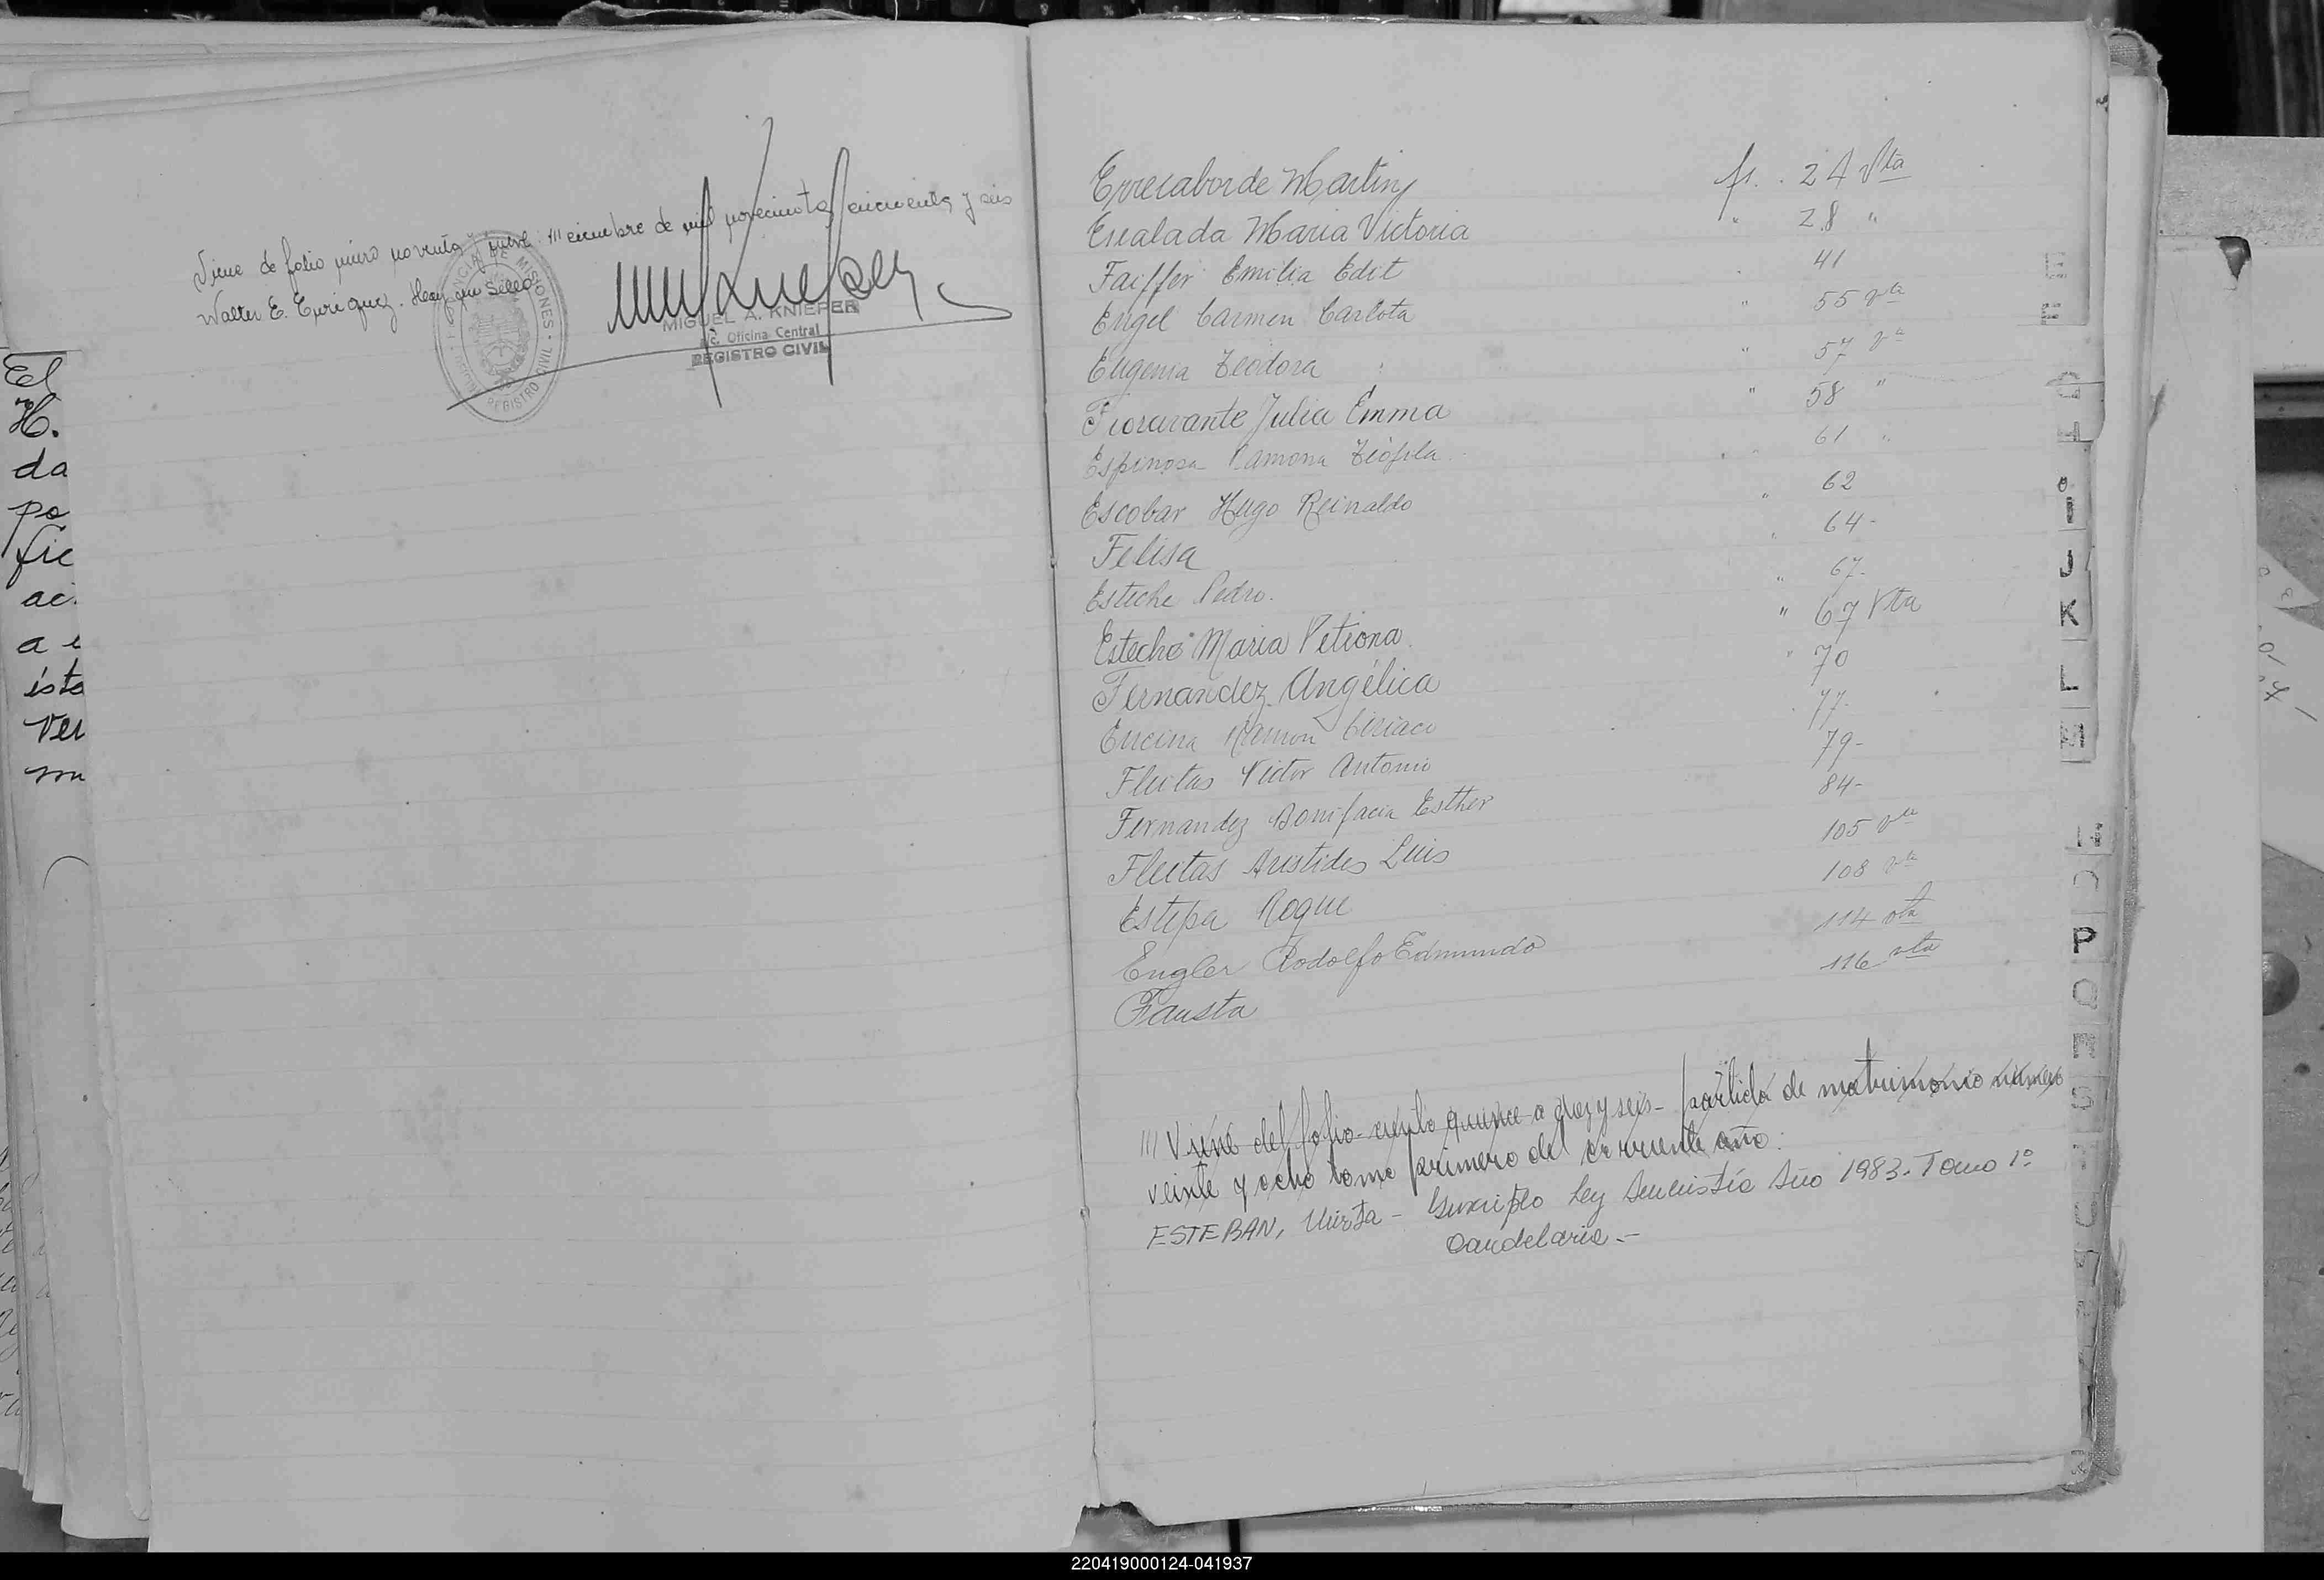 Viene de folio número noventa y nueve: /// ciembre de mil novecientos cincuenta y seis
Walter E. Enriquez. Hay un Sello
PROVINCIA DE MISIONES
REGISTRO CIVIL
MIGUEL A. KNIEPER
Oficina Central
REGISTRO CIVIL
El
H.
da
po
fic
ac.
a e
ésta
Ver
mu
Errecaborde Martin fs. 24 Vta
Escalada Maria Victoria " 28 "
Faiffer Emilia Edit 41
Engel Carmen Carlota " 55 vta
Eugenia Teodora " 57 vta
Fioravante Julia Emma " 58 "
Espinosa Ramona Teófila 61 "
Escobar Hugo Reinaldo " 62
Felisa " 64-
Esteche Pedro. " 67-
Esteche Maria Petrona " 67 Vta
Fernandez Angélica " 70
Encina Ramon Ciriaco 77-
Fleitas Victor Antonio 79-
Fernandez Bonifacia Esther 84-
Fleitas Aristides Luis 105 vta
Estepa Roque 108 vta
Engler Rodolfo Edmundo 114 vta
Fausta 116 vta
/// Viene del folio ciento quince a diez y seis- partida de matrimonio número
veinte y ocho tomo primero del corriente año.
ESTEBAN, Mirta - Inscripto Ley Amnistía Año 1983- Tomo 1º
Candelaria.-
E
F
G
H
J
K
L
M
P
Q
R
S
220419000124-041937